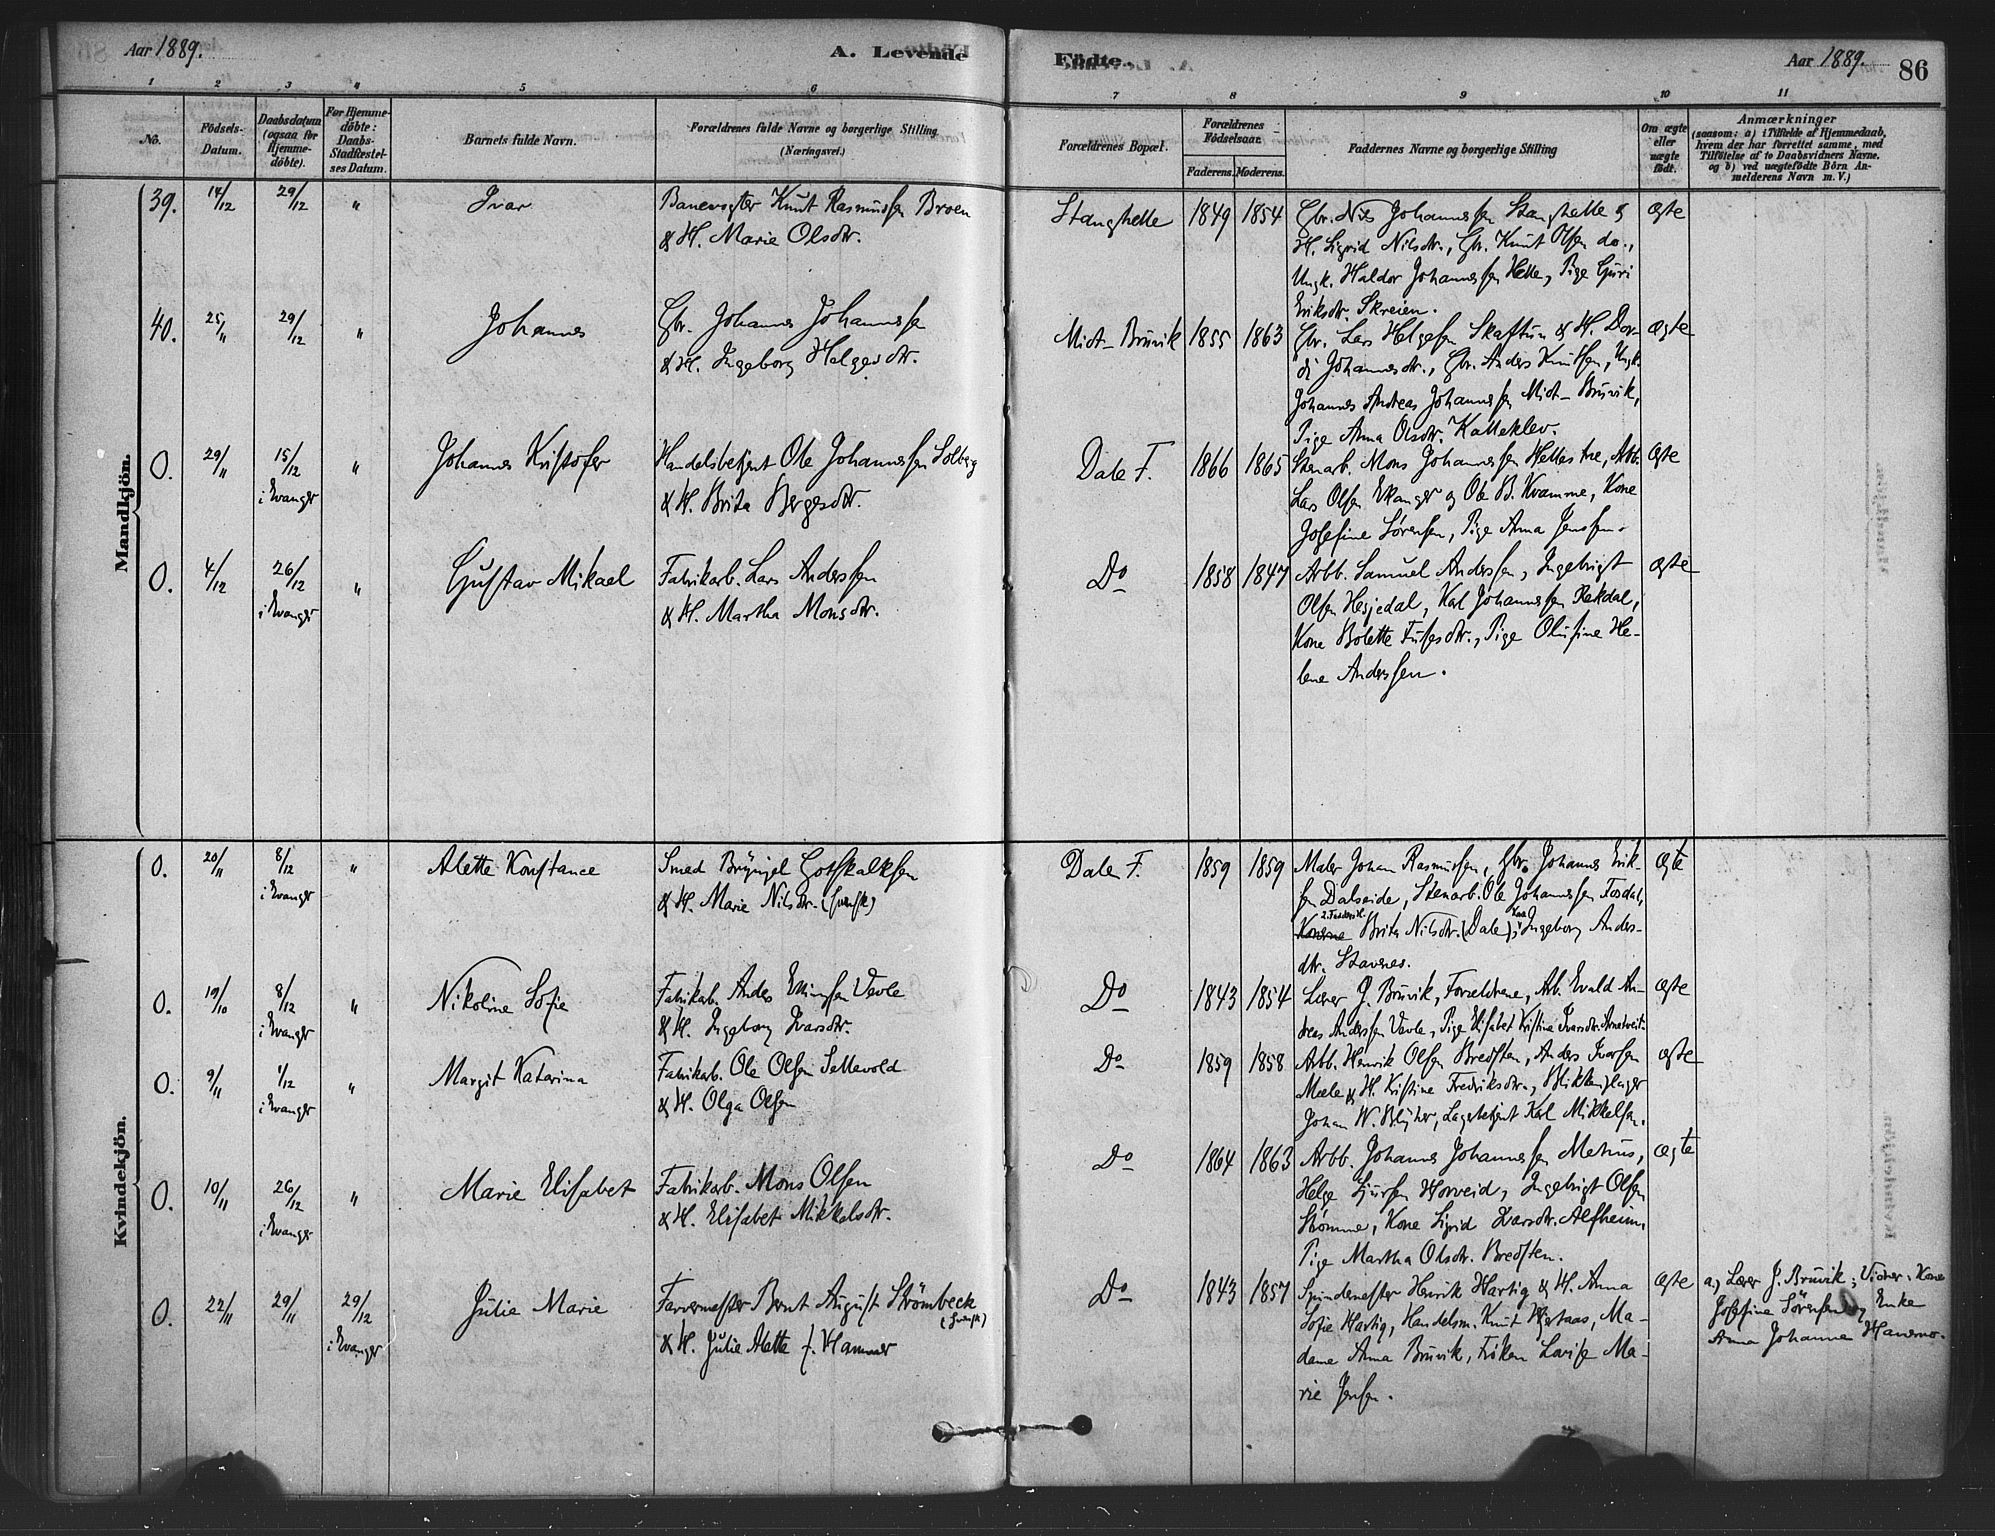 Aar 1889.
A. Levende
Födte.
Aar 1889.
86
1 2 3 4 5 6 7 8 9 10 11
No.
Födsels-
Datum.
Daabsdatum
(ogsaa for
Hjemme-
döbte).
For Hjemme-
döbte:
Daabs-
Stadfæstel-
ses Datum.
Barnets fulde Navn.
Forældrenes fulde Navne og borgerlige Stilling
(Næringsvei.)
Forældrenes Bopæl.
Forældrenes
Födselsaar.
Faderens.
Moderens.
Faddernes Navne og borgerlige Stilling
Om ægte
eller
uægte
födt.
Anmærkninger
(saasom: a) i Tilfælde af Hjemmedaab,
hvem der har forrettet samme, med
Tilföielse af to Daabsvidners Navne.
og b) ved uægtefödte Börn An-
melderens Navn m. V.)
Mandkjön.
39. 14/12 29/12 " Ivar
Banevogter Knut Rasmussen Broen
& H. Marie Olsdtr.
Stanghelle 1849 1854
Gbr. Nils Johannessen Stanghelle og
H. Sigrid Nilsdtr., Gbr. Knut Olsen do.,
Ungk. Haldor Johannessen Helle, Pige Guri
Eriksdtr. Skreien.
ægte
40. 25/11 29/12 " Johannes
Gbr. Johannes Johannessen
& H. Ingeborg Helgesdtr.
Midt-Bruvik 1855 1863
Gbr. Lars Helgesen Skaftun & H. Dor-
di Johannesdtr., Gbr. Anders Knutsen, Ungk.
Johannes Andreas Johannessen Midt-Bruvik,
Pige Anna Olsdtr. Kalleklev.
ægte
0. 29/11 15/12 i Evanger " Johannes Kristofer
Handelsbetjent Ole Johannessen Solberg
& H. Brita Bergesdtr.
Dale F. 1866 1865
Stenarb. Mons Johannessen Hellestræ, Arb.
Lars Olsen Ekanger og Ole B. Kvamme, Kone
Josefine Sørensen, Pige Anna Jensen.
ægte
0. 4/12 26/12 i Evanger " Gustav Mikael
Fabrikarb. Lars Anderssen
& H. Martha Monsdtr.
Do 1858 1847
Arbb. Samuel Anderssen, Ingebrigt
Olsen Hesjedal, Karl Johannessen Rekdal,
Kone Bolette Pige Olufine He-
lene Anderssen.
ægte
Kvindekjön.
0. 20/11 8/12 i Evanger " Alette Konstance
Smed Brynjel Gotskalksen
& H. Marie Nilsdtr. (svensk)
Dale F. 1859 1859
Maler Johan Rasmussen, Gbr. Johannes Erik-
sen Dalseide, Stenarb. Ole Johannessen Fosdal,
Konerne Brita Nilsdtr. (Dale), Ingeborg Anders-
dtr. Stavnes.
ægte
0. 19/10 8/12 i Evanger " Nikoline Sofie
Fabrikarb. Anders Ellingsen Vevle
& H. Ingeborg Ivarsdtr.
Do 1843 1854
Lærer J. Bruvik, Forældrene, Arb. Evald An-
dreas Anderssen Vevle, Pige Elisabet Kristine Ivarsdtr. Arnatveit.
ægte
0. 9/11 1/12 i Evanger " Margit Katarina
Fabrikarb. Ole Olsen Sellevold
& H. Olga Olsen
Do 1859 1858
Arbb. Henrik Olsen Bredsten, Anders Ivarsen
Mæle & H. Kristine Fredriksdtr., Blikkenslager
Johan W. Blyther, Lagerbetjent Karl Mikkelsen.
ægte
0. 10/11 26/12 i Evanger " Marie Elisabet
Fabrikarb. Mons Olsen
& H. Elisabet Mikkelsdtr.
Do 1864 1863
Arbb. Johannes Johannessen Metius,
Helge Sjursen Horveid, Ingebrigt Olsen
Strømme, Kone Sigrid Ivarsdtr. Alfheim,
Pige Martha Olsdtr. Bredsten.
ægte
0. 22/11 29/11 29/12 i Evanger Julia Marie
Farvemester Bernt August Strömbeck
(svensk)
& H. Julie Alette f. Hammer
Do 1843 1857
Spindemester Henrik Hartig & H. Anna
Sofie Hartig, Handelsm. Knut Ma-
dame Anna Bruvik, Frøken Lovise Ma-
rie Jensen.
ægte
a) Lærer J. Bruvik; Vidner: Kone
Josefine Sörensen og Enke
Anna Johanne